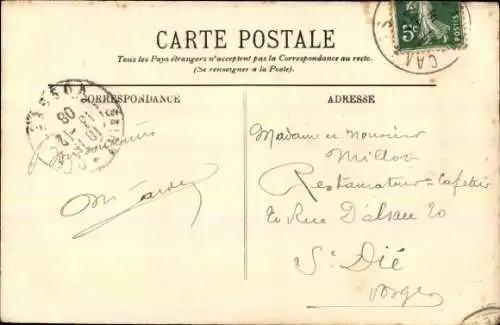 CARTE POSTALE
Tous les Pays étrangers n'acceptent pas la Correspondance au recto.
(Se renseigner à la Poste).
CORRESPONDANCE
ADRESSE
5c
POSTES
Madame et Monsieur
Millot
Restaurateur-Cafetier
20 Rue D'alsace 20
St Dié
Vosges